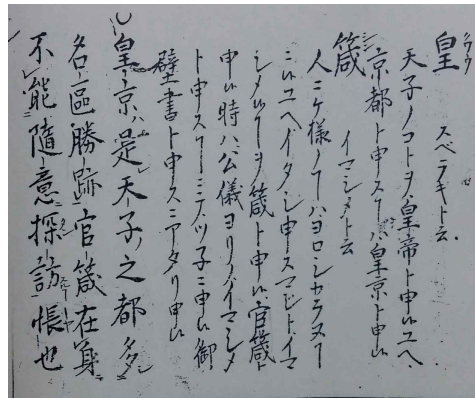 皇 スベラキト云
天子ノコトヲ皇帝ト申候ユヘ
京都ト申スヿハ皇京ト申候
箴 イマシメト云
人ニケ様ノヿハヨロシカラヌヿ
ニ候ユヘイタシ申スマジトイマ
シメルヿヲ箴ト申候官箴ト
申候時ハ公儀ヨリノイマシメ
ト申スヿニテツ子ニ申候御
壁書ト申スニアタリ申候
皇京ハ是天子ノ之都多
名區勝跡官箴在身
不能隨意探訪悵也